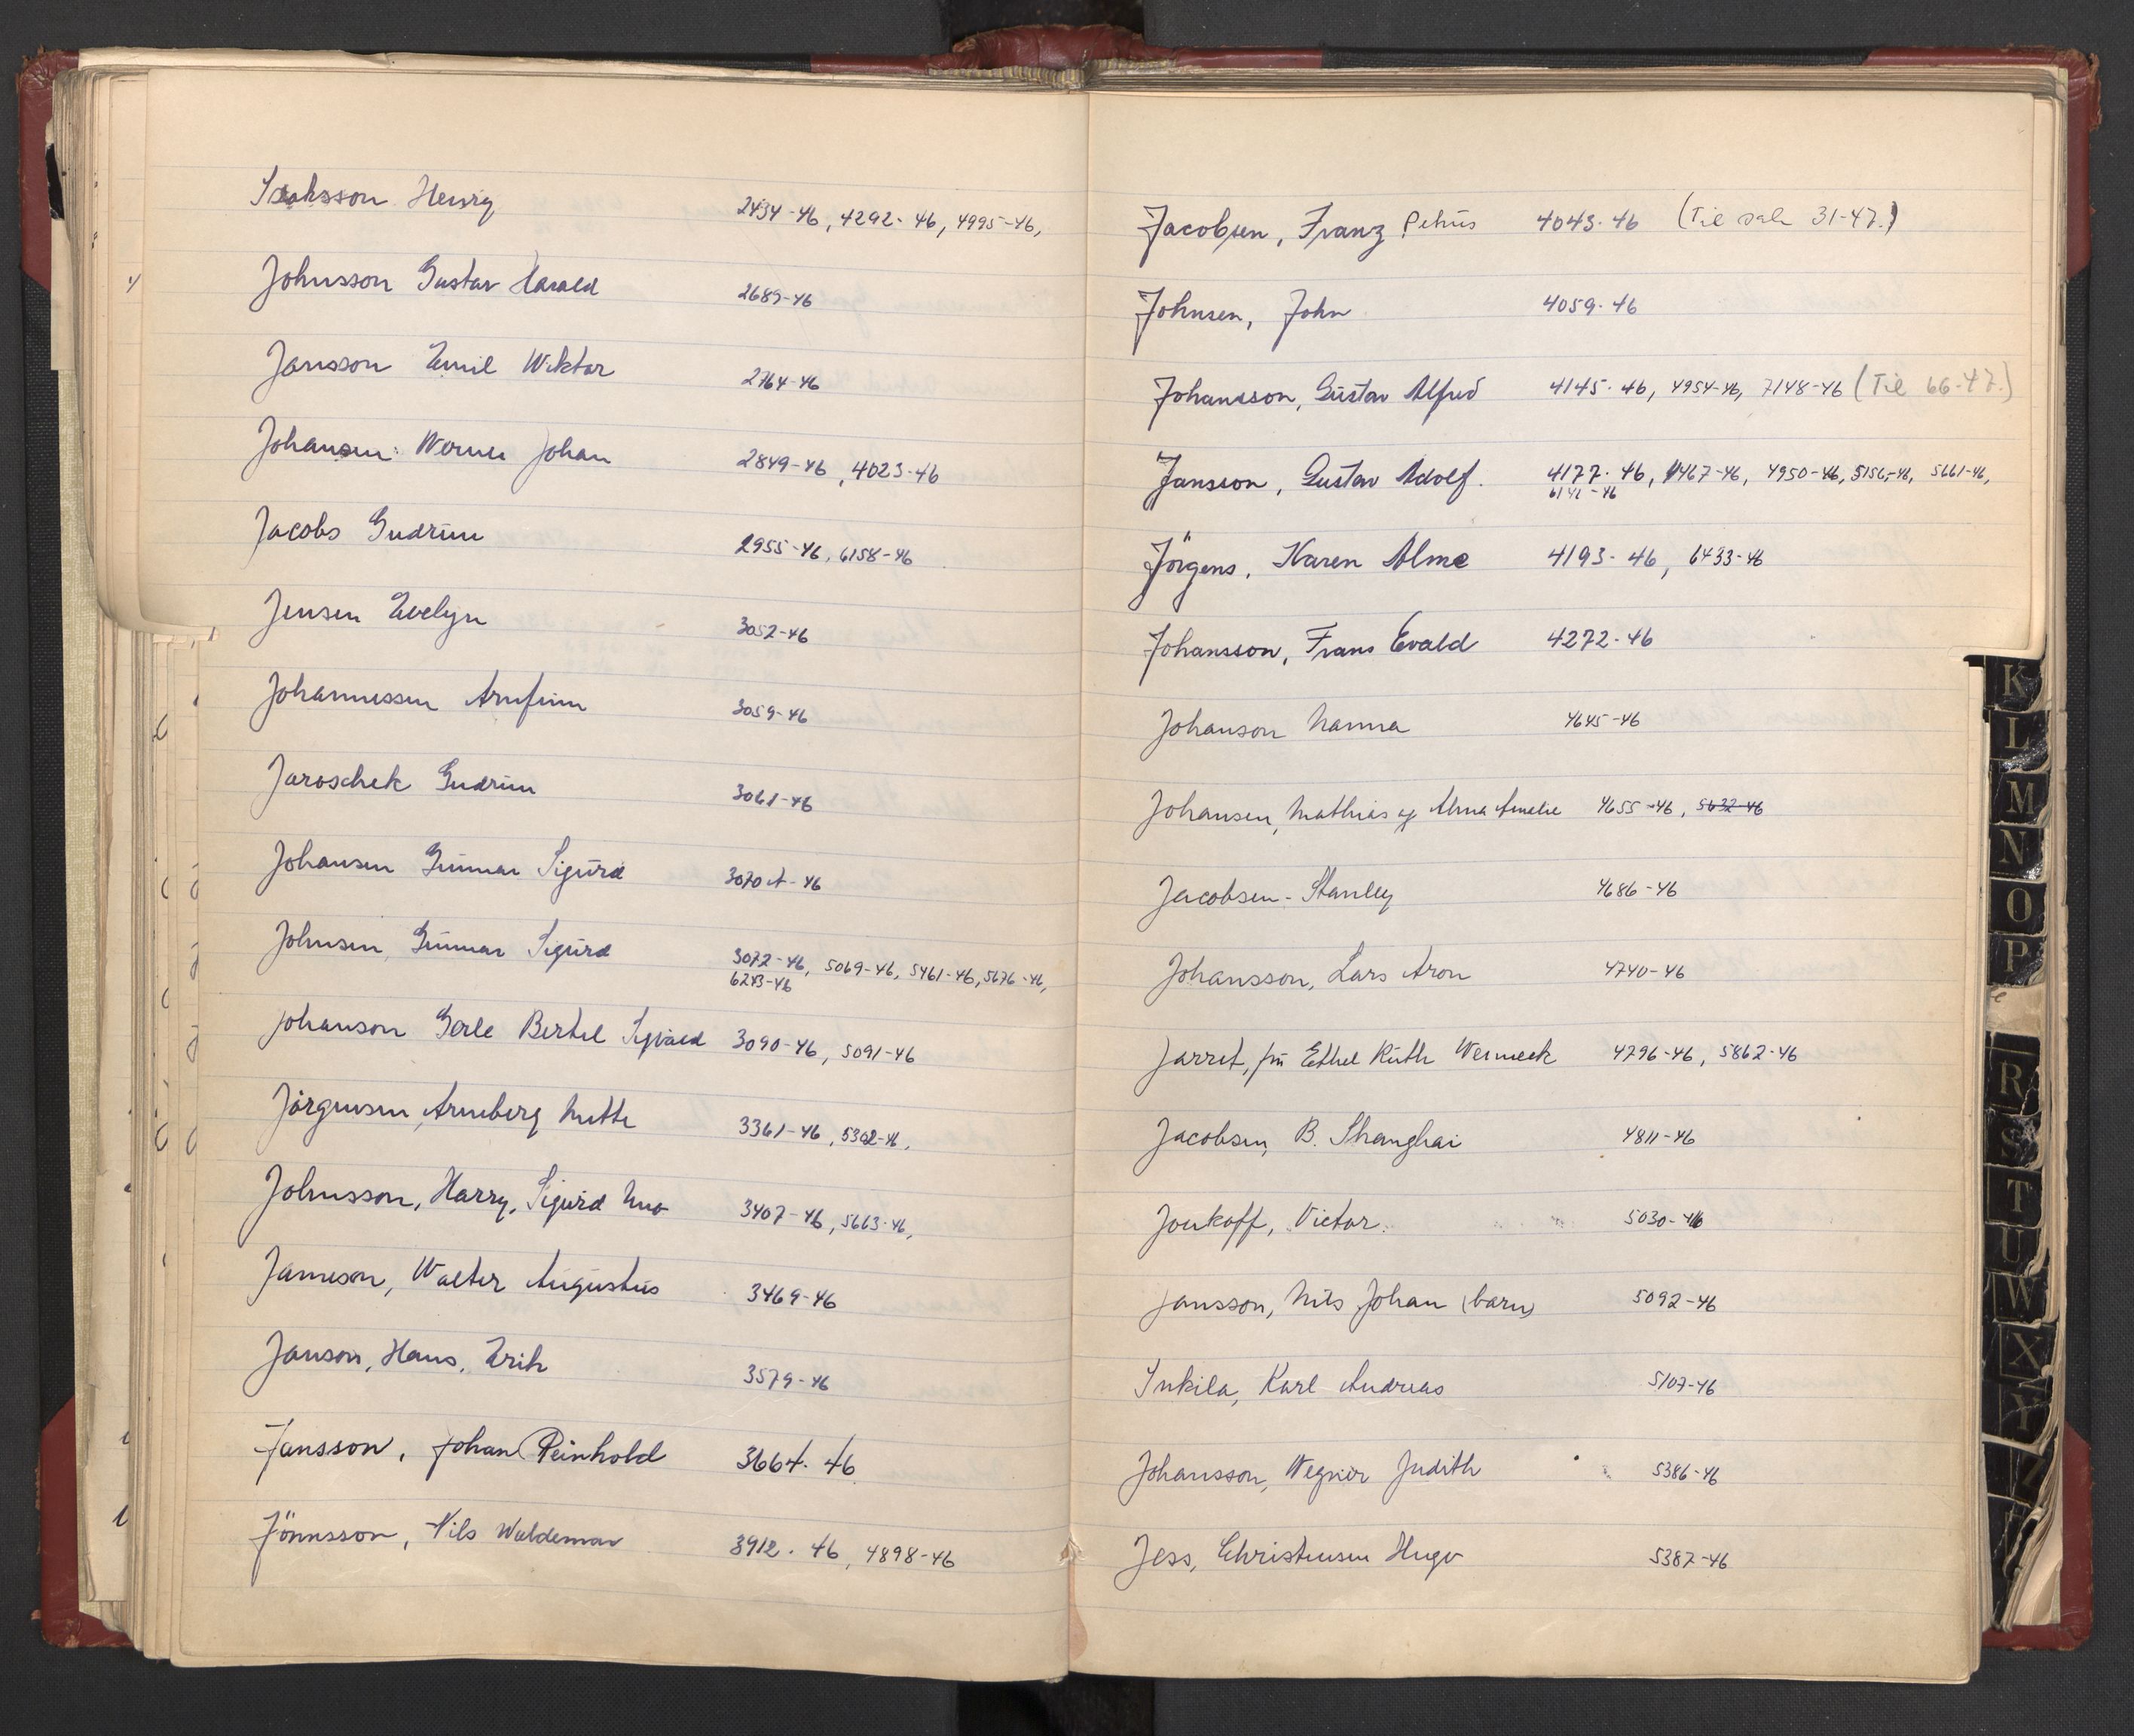 Isaksson Henry 2434-46, 4292-46, 4995-46,
Johnsson Gustav Harald 2689-46
Jansson Emil Wiktor 2764-46
Johansen: Werner Johan 2849-46, 4023-46
Jacobs Gudrun 2955-46, 6158-46
Jensen Evelyn 3052-46
Johannessen Arnfinn 3059-46
Jaroschek Gudrun 3061-46
Johansen Gunnar Sigurd 3070A-46
Johnsen Gunnar Sigurd 3072-46, 5069-46, 5461-46, 5676-46,
6243-46
Johanson Gerle Bertel Sigvald 3090-46, 5091-46
Jørgensen, Arneberg Mette 3361-46, 5302-46,
Johnsson, Harry, Sigurd Uno 3407-46, 5663-46,
Jameson, Walter Augustus 3469-46
Janson, Hans, Erik 3579-46
Jansson, Johan Reinhold 3664-46
Jönnsson, Nils Waldemar 3912-46, 4898-46
Jacobsen, Franz Petrus 4043-46 (Til sak 31-47.)
Johnsen, John 4059-46
Johansson, Gustav Alfred 4145-46, 4954-46, 7148-46 (Til 66-47.)
Jansson, Gustav Adolf. 4177-46, 4467-46, 4950-46, 5156-46, 5661-46,
6141-46
Jörgens, Karen Alme 4193-46, 6433-46
Johansson, Frans Evald 4272-46
Johanson Nanna 4645-46
Johansen, Mathias og Alma Amelie 4655-46, 5632-46
Jacobsen-Stanley 4686-46
Johansson, Lars Aron 4740-46
Jarret, fru Ethel Ruth Werneck 4796-46, 5862-46
Jacobsen, B. Shanghai 4811-46
Joukoff, Victor. 5030-46
Jansson, Nils Johan (barn) 5092-46
Inkila, Karl Andreas 5107-46
Johansson, Wegner Judith 5386-46
Jess, Christensen Hugo 5387-46
K
L
M
N
O
P
R
S
T
U
W
X
Y
Z